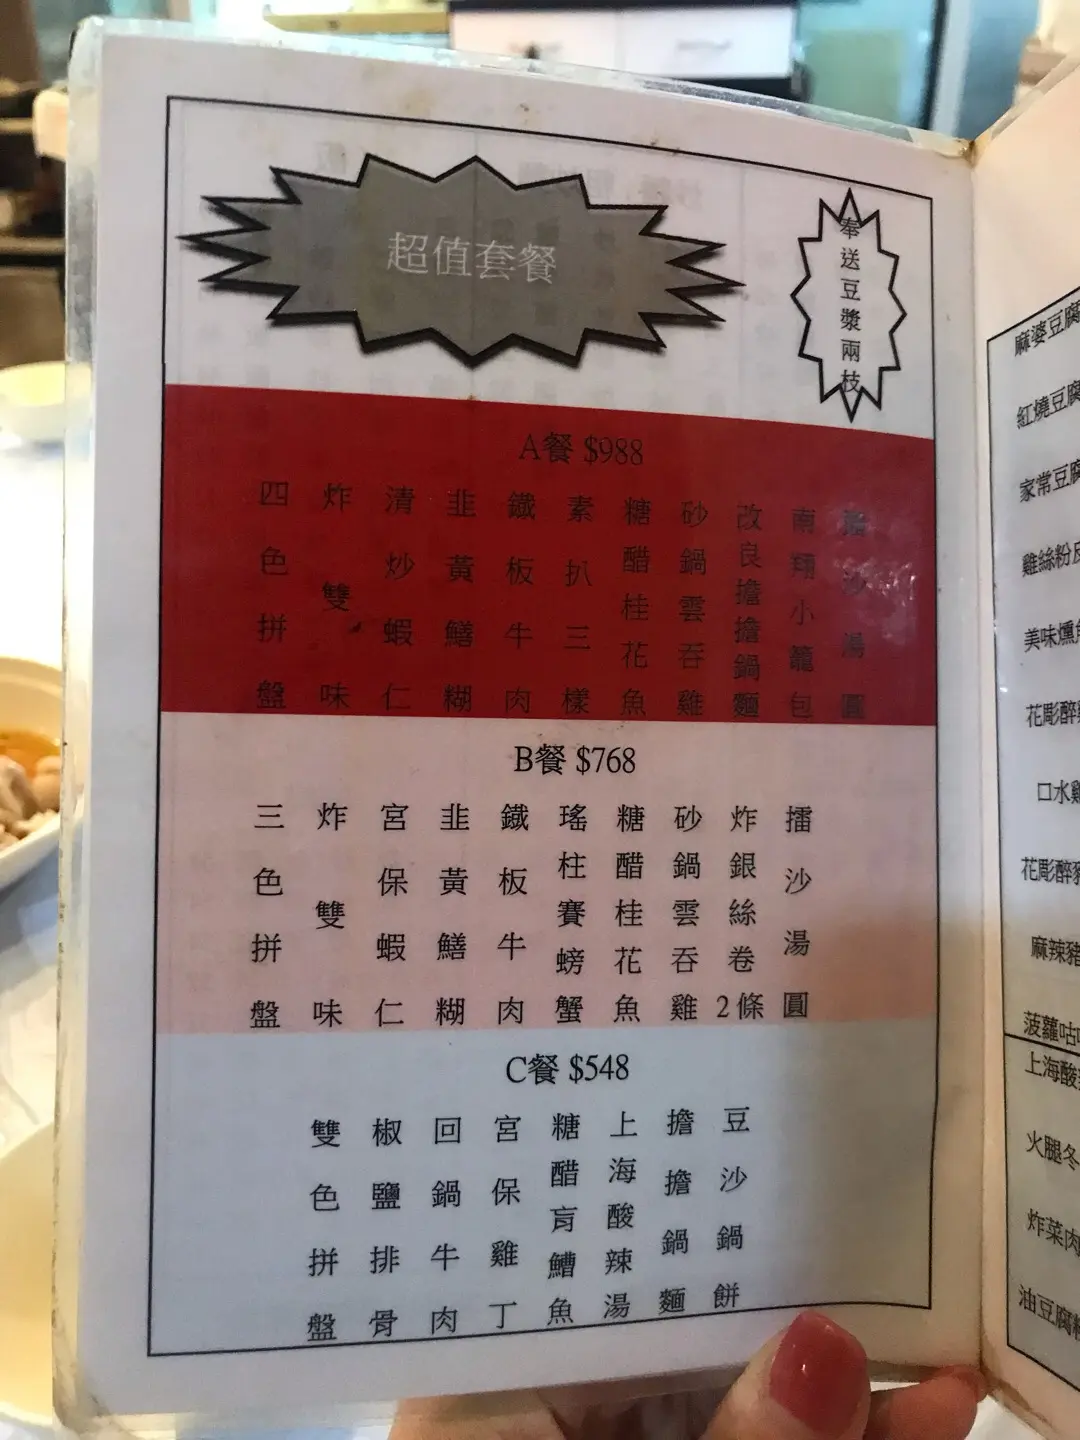 超值套餐
奉送豆漿兩枝
A餐 $988
四色拼盤
炸雙味
清炒蝦仁
韭黃鱔糊
鐵板牛肉
素扒三樣
糖醋桂花魚
砂鍋雲吞雞
改良擔擔鍋麵
南翔小籠包
擂沙湯圓
B餐 $768
三色拼盤
炸雙味
宮保蝦仁
韭黃鱔糊
鐵板牛肉
瑤柱賽螃蟹
糖醋桂花魚
砂鍋雲吞雞
炸銀絲卷2條
擂沙湯圓
C餐 $548
雙色拼盤
椒鹽排骨
回鍋牛肉
宮保雞丁
糖醋肓鰽魚
上海酸辣湯
擔擔鍋麵
豆沙鍋餅
麻婆豆腐
紅燒豆腐
家常豆腐
雞絲粉皮
美味燻
花彫醉
口水雞
花彫醉豬
麻辣豬
菠蘿咕
上海酸
火腿冬
炸菜肉
油豆腐